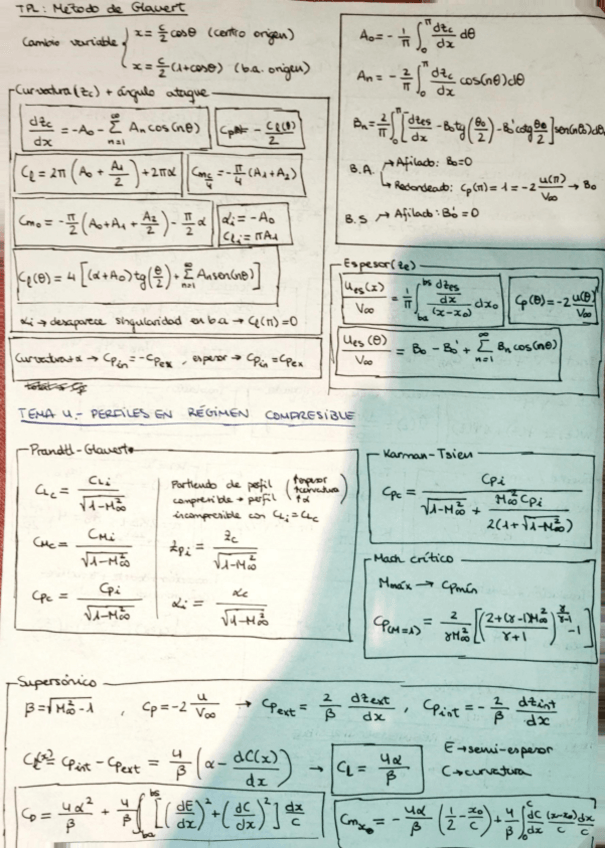 TPL: Método de Glavert
Cambio variable { x = c/2 cosθ (centro origen)
x = c/2 (1+cosθ) (b.a. origen)
Curvatura (Zc) + ángulo ataque
dzc/dx = -A₀ - Σ_{n=1}^{∞} An cos(nθ)
Cp = - Cl(θ)/2
Cl = 2π (A₀ + A₁/2) + 2πα
Cm_{c/4} = -π/4 (A₁+A₂)
Cm₀ = -π/2 (A₀+A₁+A₂/2) - π/2 α
αi = -A₀
Cli = πA₁
Cl(θ) = 4 [(α+A₀) tg(θ/2) + Σ_{n=1}^{∞} An sen(nθ)]
αi → desaparece singularidad en b.a → Cl(π)=0
Curvatura+α → Cpin = -Cpex, espesor → Cpin = Cpex
A₀ = -1/π ∫₀^π dzc/dx dθ
An = -2/π ∫₀^π dzc/dx cos(nθ)dθ
Bn = 2/π ∫₀^π [dzes/dx - B₀ tg(θ₀/2) - B₀' cotg θ₀/2] sen(nθ₀) dθ₀
B.A. → Afilado: B₀=0
→ Redondeado: Cp(π) = 1 = -2 u(π)/V∞ → B₀
B.S → Afilado: B₀' = 0
Espesor (ze)
ues(x)/V∞ = 1/π ∫_{ba}^{bs} (dzes/dx)/(x-x₀) dx₀
Cp(θ) = -2 u(θ)/V∞
ues(θ)/V∞ = B₀ - B₀' + Σ_{n=1}^{∞} Bn cos(nθ)
TEMA 4.- PERFILES EN RÉGIMEN COMPRESIBLE
Prandtl-Glavert
CLc = CLi/√(1-M∞²)
CMc = CMi/√(1-M∞²)
Cpc = Cpi/√(1-M∞²)
Partiendo de perfil
compresible → perfil (↑espesor ↑curvatura ↑α)
incompresible con CLi = CLc
Zpi = Zc/√(1-M∞²)
αi = αc/√(1-M∞²)
Karman-Tsien
Cpc = Cpi/(√(1-M∞²) + M∞² Cpi/(2(1+√(1-M∞²))))
Mach crítico
Mmáx → Cpmín
Cp(M=1) = 2/(γM∞²) [((2+(γ-1)M∞²)/(γ+1))^{γ/(γ-1)} - 1]
Supersónico
β = √(M∞²-1) , Cp = -2 u/V∞ → Cpext = 2/β dzext/dx , Cpint = -2/β dzint/dx
Cl(x) = Cpint - Cpext = 4/β (α - dC(x)/dx) → CL = 4α/β
E → semi-espesor
C → curvatura
CD = 4α²/β + 4/β ∫_{ba}^{bs} [(dE/dx)² + (dC/dx)²] dx/c
Cm_{x₀} = -4α/β (1/2 - x₀/c) + 4/β ∫₀^c dC/dx (x-x₀)/c dx/c